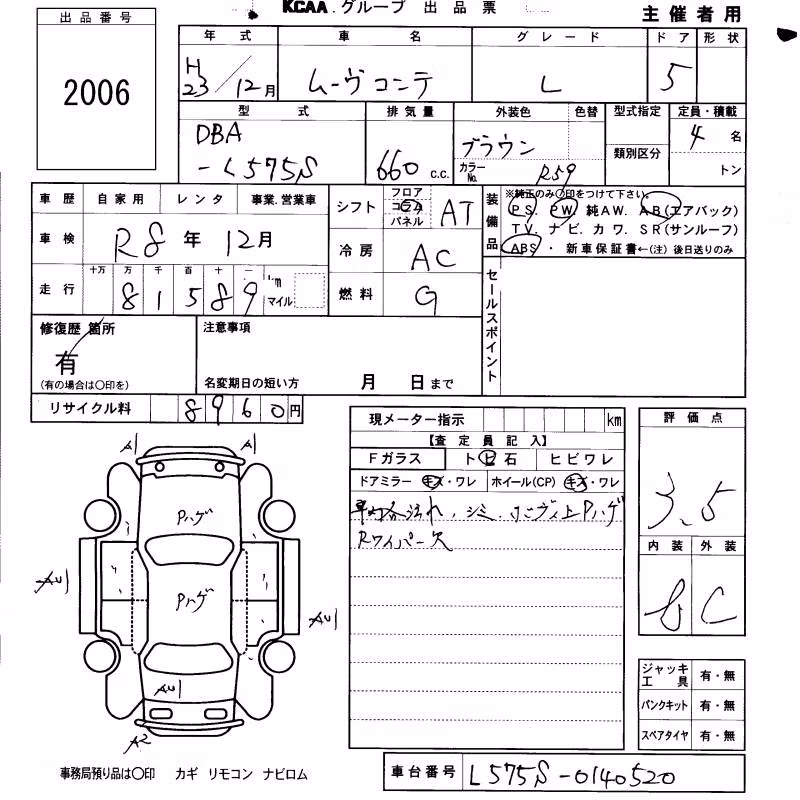 KCAA.グループ 出品票
主催者用
出品番号
2006
年式 車名 グレード ドア 形状
H23/12月 ムーヴコンテ L 5
型式 排気量 外装色 色替 型式指定 定員・積載
DBA-L575S 660 c.c. ブラウン カラーNo. R59 類別区分 4名 トン
車歴 自家用 レンタ 事業.営業車
車検 R8年 12月
走行 十万 万 千 百 十 一 81589 km マイル
シフト フロア コラム パネル AT
冷房 AC
燃料 G
装備品 ※純正のみ〇印をつけて下さい。
PS. PW. 純AW. AB(エアバック)
TV. ナビ. カワ. SR(サンルーフ)
ABS・新車保証書←(注)後日送りのみ
セールスポイント
修復歴 箇所
有
(有の場合は〇印を)
注意事項
名変期日の短い方 月 日まで
リサイクル料 8960円
現メーター指示 km
【査定員記入】
Fガラス トビ石 ヒビワレ
ドアミラー キズ・ワレ ホイール(CP) キズ・ワレ
Rワイパー欠
評価点
3.5
内装 外装
C
ジャッキ工具 有・無
パンクキット 有・無
スペアタイヤ 有・無
A1 A1
Pハゲ
Pハゲ
AU1 AU1
AU1
A2
事務局預り品は〇印 カギ リモコン ナビロム
車台番号 L575S-0140520